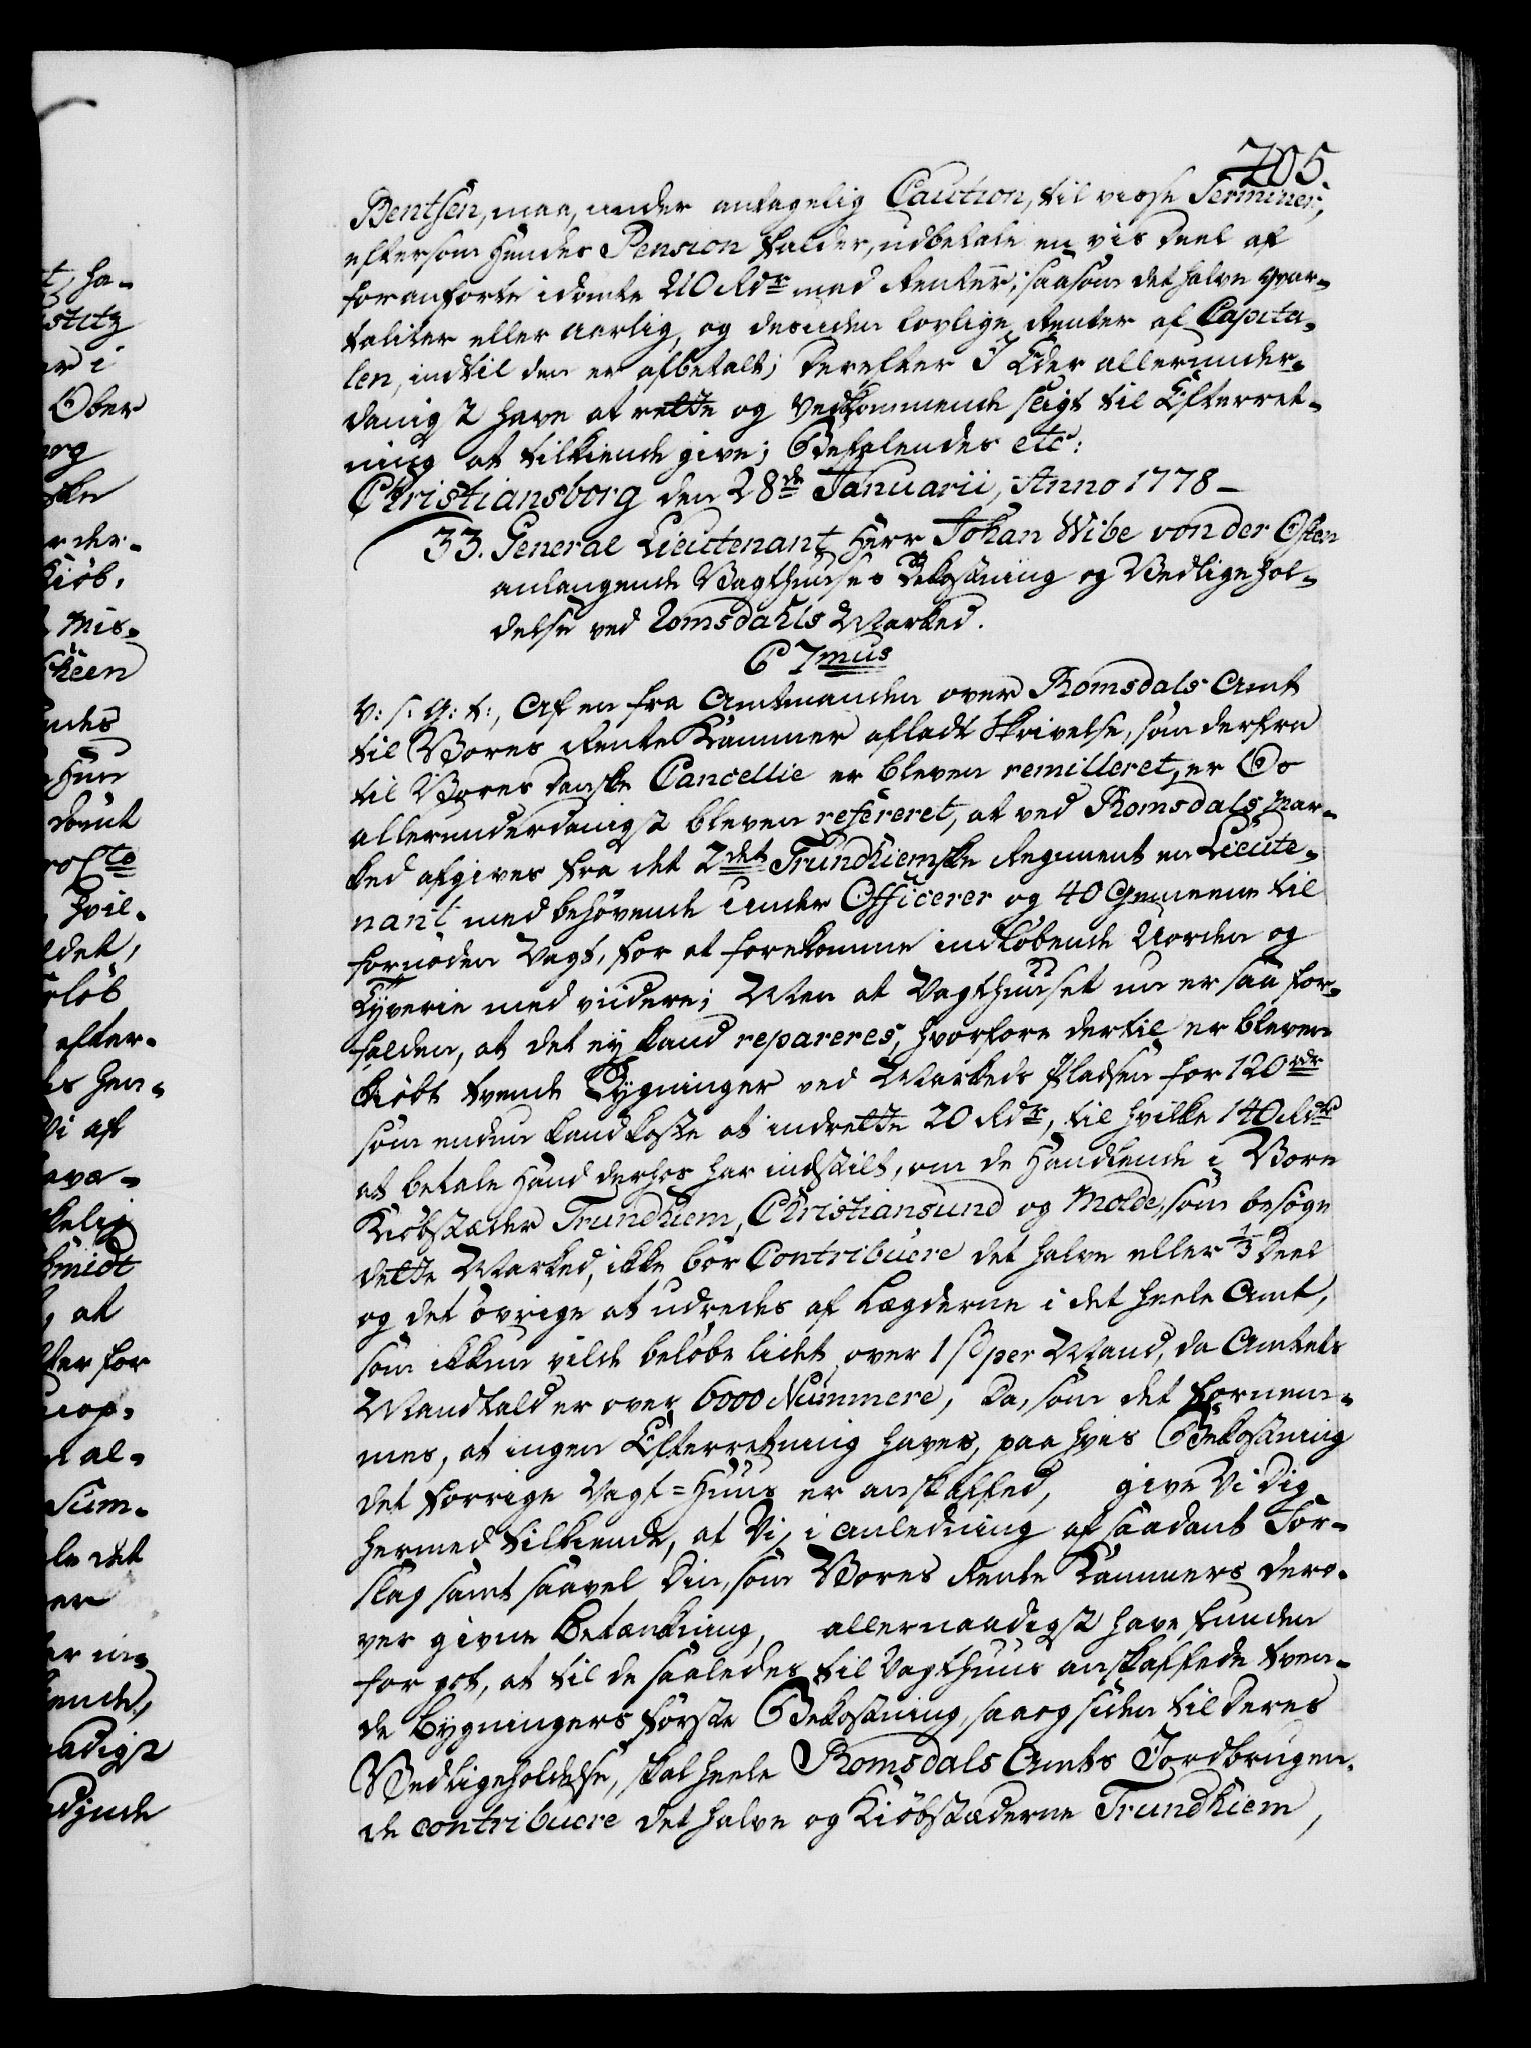 205.
Bentsen, maa, under antagelig Caution, til visse Terminer,
eftersom Hendes Pension falder, udbetale en vis Deel af
foranførte idømte 210 Rdr med Renter; saasom det halve qvar-
taliter eller aarlig, og desuden lovlige Renter af Capita-
len, indtil den er afbetalt; Derefter I Eder allerunder-
danigst have at rette og Vedkommende sligt til Efterret-
ning at tilkiende give; Befalendes etc:
Christiansborg den 28de Januarii, Anno 1778-
33. General Lieutenant Herr Johan Wibe von der Osten
anlangende Vagthuuses Bekostning og Vedligehol-
delse ved Romsdahls Marked.
C 7mus
V: s: G: t:, Af en fra Amtmanden over Romsdals Amt
til Vores Rente Kammer afladt Skrivelse, som derfra
til Vores danske Cancellie er bleven remitteret, er Os
allerunderdanigst bleven refereret, at ved Romsdals Mar-
ked afgives fra det 2det Trundhiemske Regiment en Lieute-
nant med behøvende Under Officerer og 40 Gemeene til
fornøden Vagt, for at forekomme indløbende Uorden og
Tyverie med viidere; Men at Vagthuuset nu er saa for-
falden, at det ey kand repareres, hvorfore dertil er bleven
kiøbt tvende Bygninger ved Markeds Pladsen for 120 rdr
som endnu kand koste at indrette 20 Rdr, til hvilke 140 Rdr
at betale Hand derhos har indstilt, om de Handlende i Vore
Kiøbstæder Trundhiem, Christiansund og Molde, som besøge
dette Marked, ikke bør Contribuere det halve eller 1/3 Deel
og det øvrige at udredes af Lægderne i det heele Amt,
som ikkun vilde beløbe lidt over 1 ß per Mand, da Amtets
Mandtal er over 6000 Nummere, Da, som det fornem-
mes, at ingen Efterretning haves, paa hvis Bekostning
det forrige Vagt=Huus er anskaffed, give Vi Dig
hermed tilkiende, at Vi, i anledning af saadant For-
slag samt saavel Din, som Vores Rente Kammers dero-
ver givne Betænkning, allernaadigst have funden
for got, at til de saaledes til Vagthuus anskaffede tven-
de bygningers første Bekostning, saa og siden til deres
Vedligeholdelse, skal heele Romsdals Amts Jordbrugen-
de contribuere det halve og Kiøbstæderne Trundhiem,